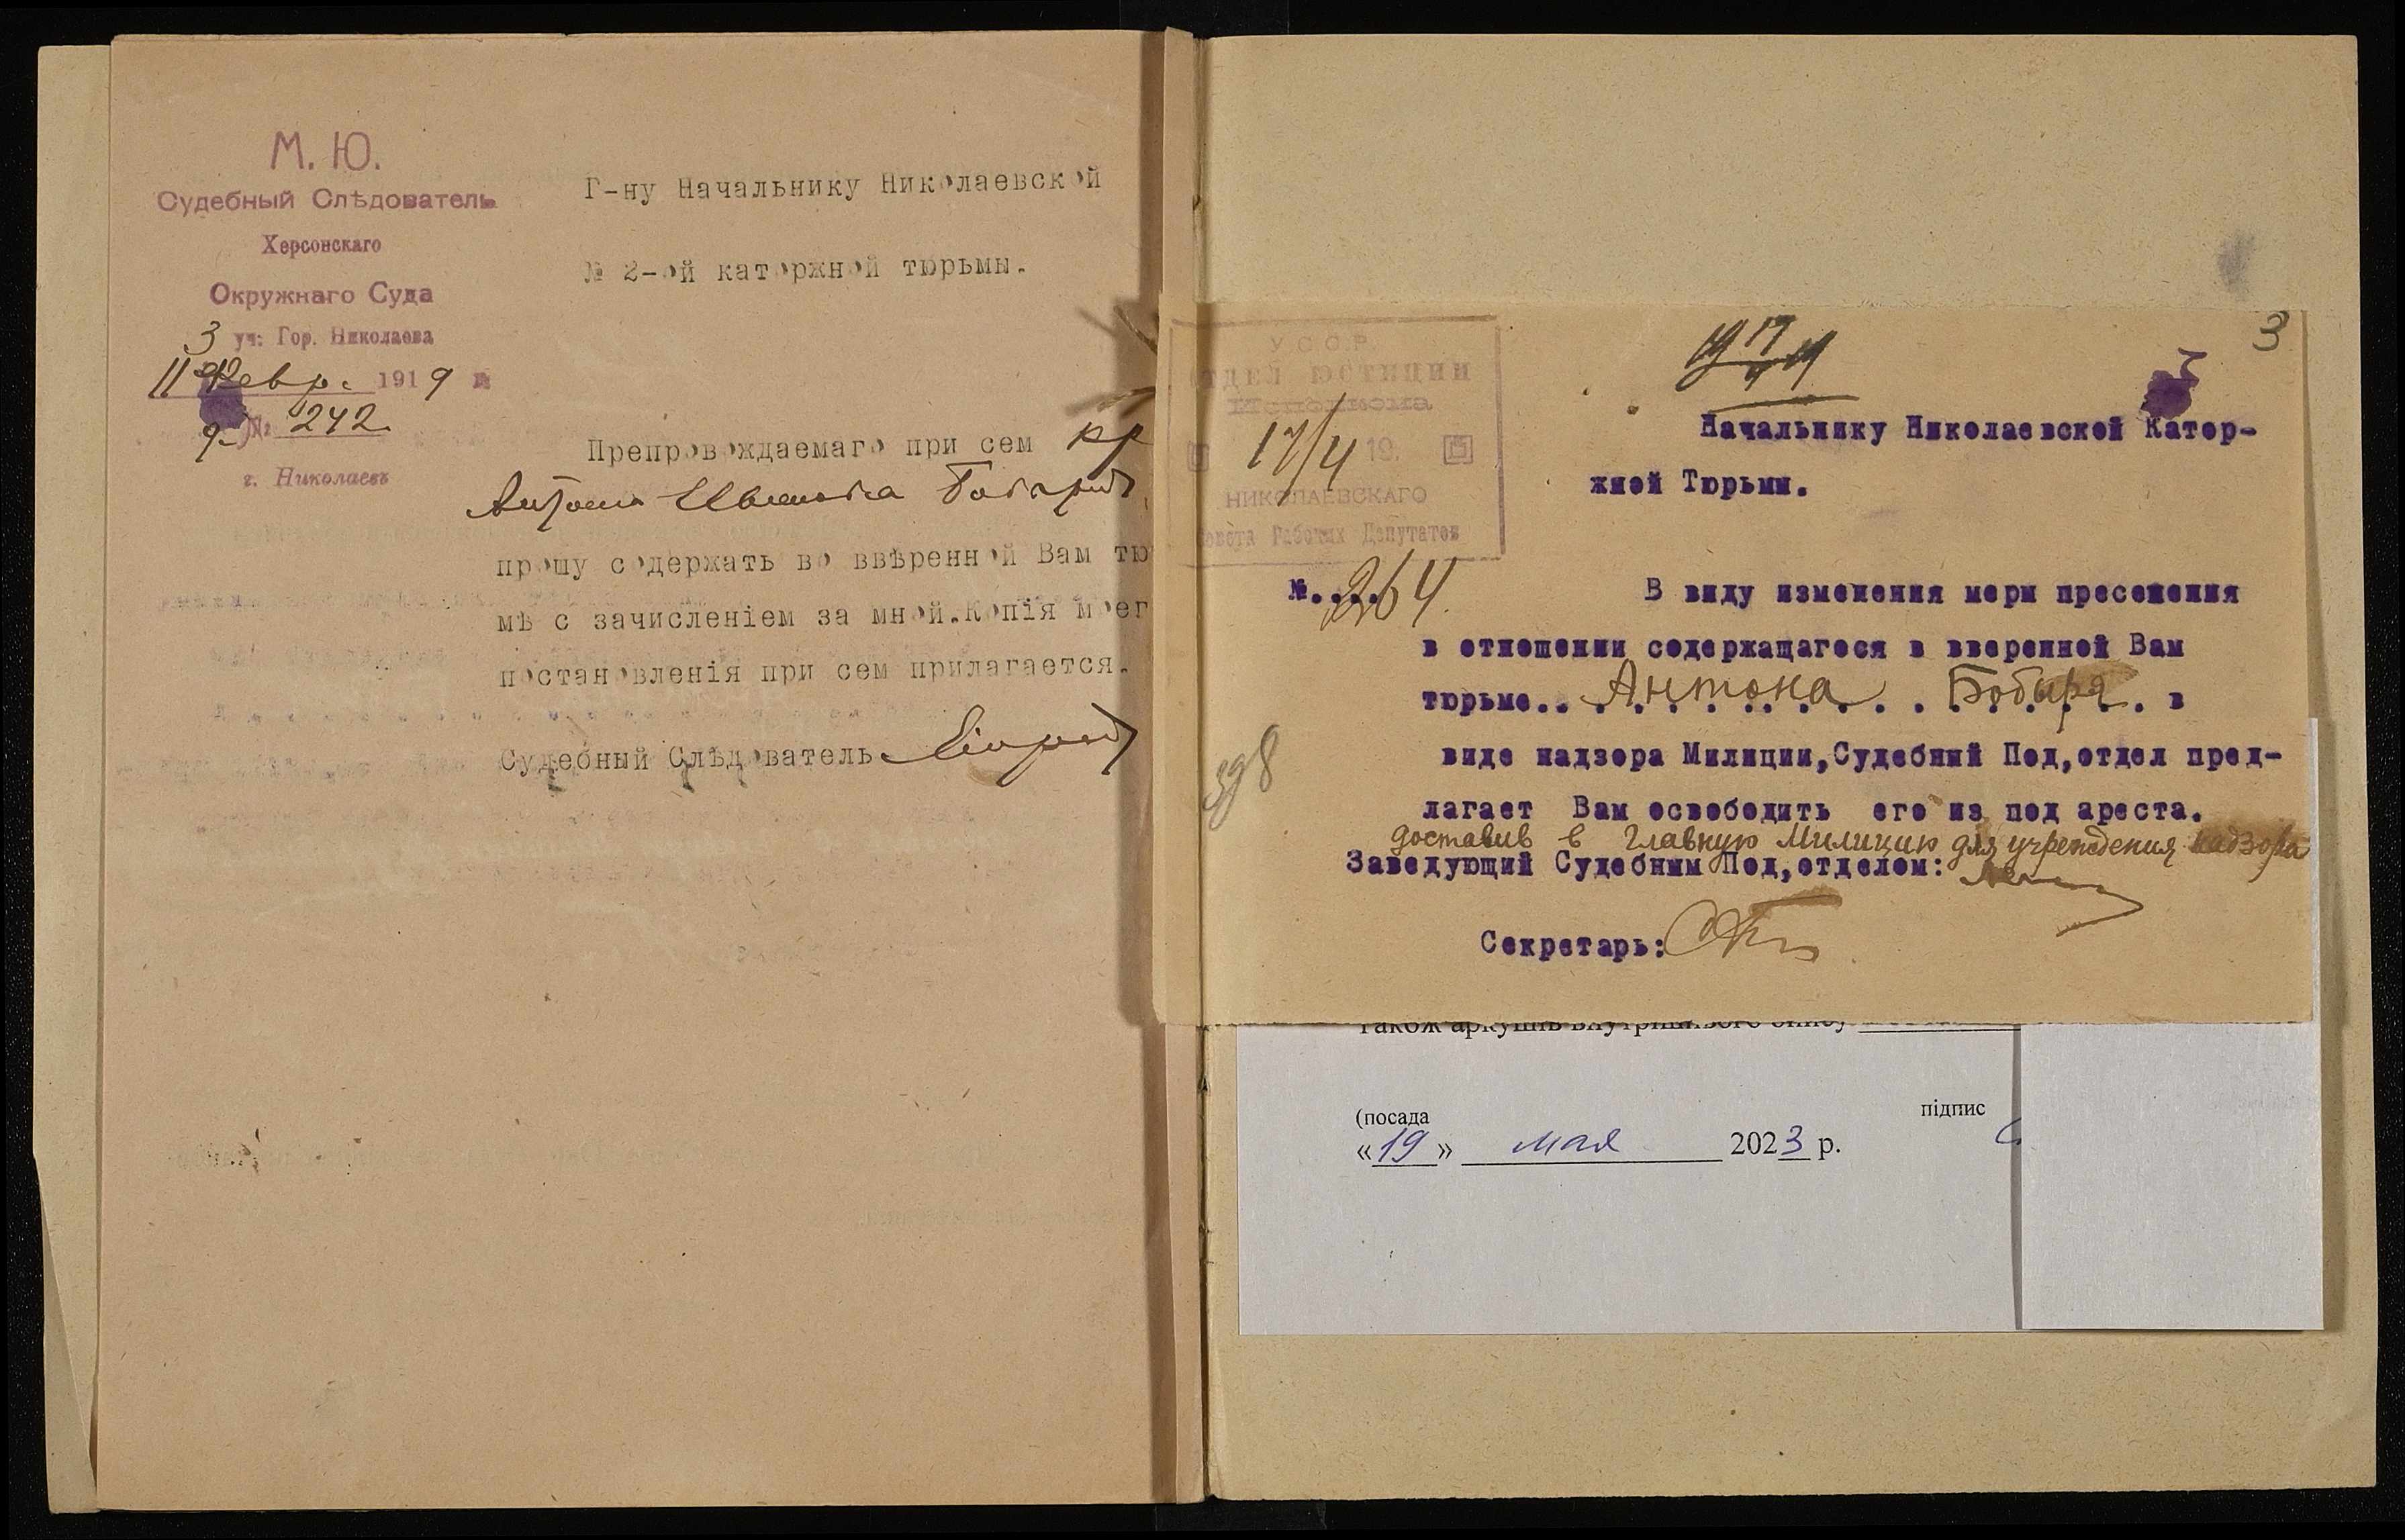 М. Ю.
Судебный Слѣдователь
Херсонскаго
Окружнаго Суда
3 уч: Гор. Николаева
11 Февр. 1919
№ 242
г. Николаевъ
Г-ну Начальнику Николаевской
№ 2-ой каторжной тюрьмы.
Препровождаемаго при сем кр
Антона
прошу содержать во ввѣренной Вам тю
мѣ с зачисленіем за мной.Копія моег
постановленія при сем прилагается.
Судебный Слѣдователь
3
У С С Р.
ОТДЕЛ ЮСТИЦИИ
Исполкома
17/4 19
НИКОЛАЕВСКАГО
Совета Рабочих Депутатов
№....264.
Начальнику Николаевской Катор-
жной Тюрьмы.
В виду изменения меры пресечения
в отношении содержащагося в вверенной Вам
тюрьме.. Антона Бобыря в
виде надзора Милиции,Судебный Под,отдел пред-
лагает Вам освободить его из под ареста.
доставив в Главную Милицию для учреждения надзора
Заведующий Судебным Под,отделом:
Секретарь:
398
також аркушів внутрішнього опису
(посада
підпис
«19» мая 2023 р.